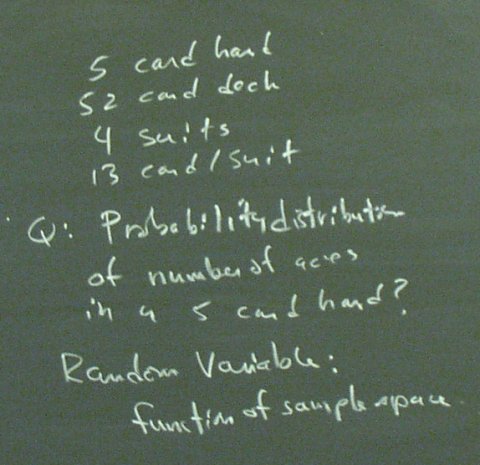 5 card hand
52 card deck
4 suits
13 card/suit
Q: Probability distribution
of number of aces
in a 5 card hand?
Random Variable:
function of sample space.